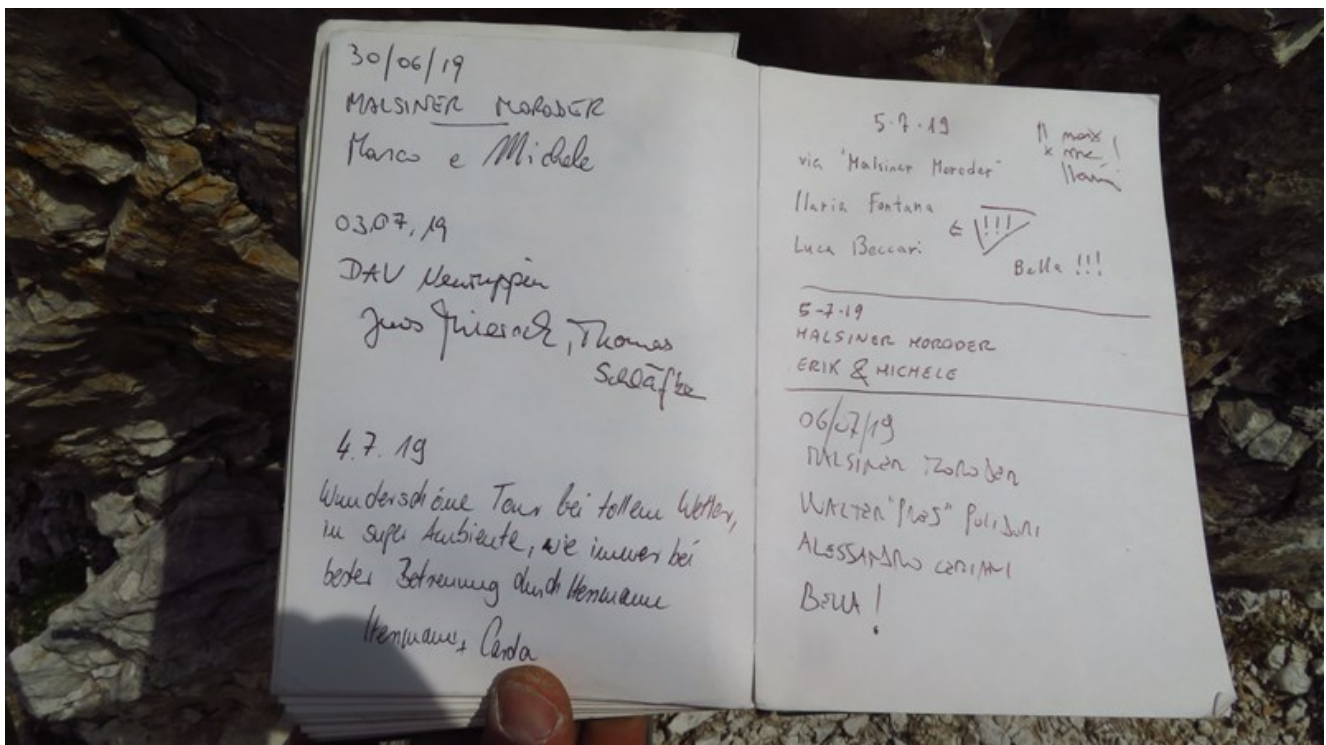 30/06/19
MALSINER MORODER
Marco e Michele
03.07.19
DAV Neuruppin
Jens, Thomas
Schläfke
4.7.19
Wunderschöne Tour bei tollem Wetter,
im super Ambiente, wie immer bei
bester Betreuung durch Hermann
Hermann + Gerda
5.7.19
via "Malsiner Moroder"
Ilaria Fontana
Luca Beccari
⇐ !!!
Bella !!!
5-7-19
MALSINER MORODER
ERIK & MICHELE
06/07/19
MALSINER MORODER
WALTER "PRES" POLIDORI
ALESSANDRO CERIANI
BELLA!